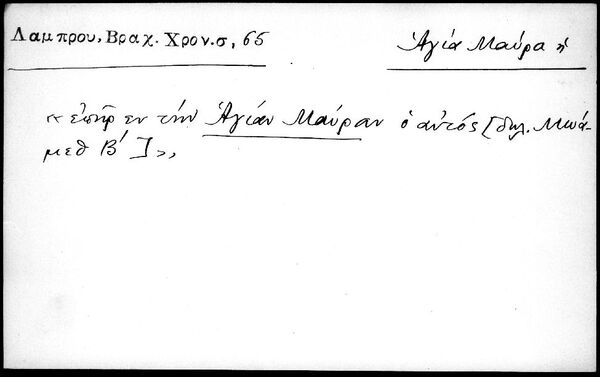 Λαμπρου, Βραχ. Χρον. σ, 65
Ἁγία Μαύρα ἡ
« ἐπῆρεν τὴν Ἁγίαν Μαύραν ὁ αὐτός [δηλ. Μωά-
μεθ Β' ] »,